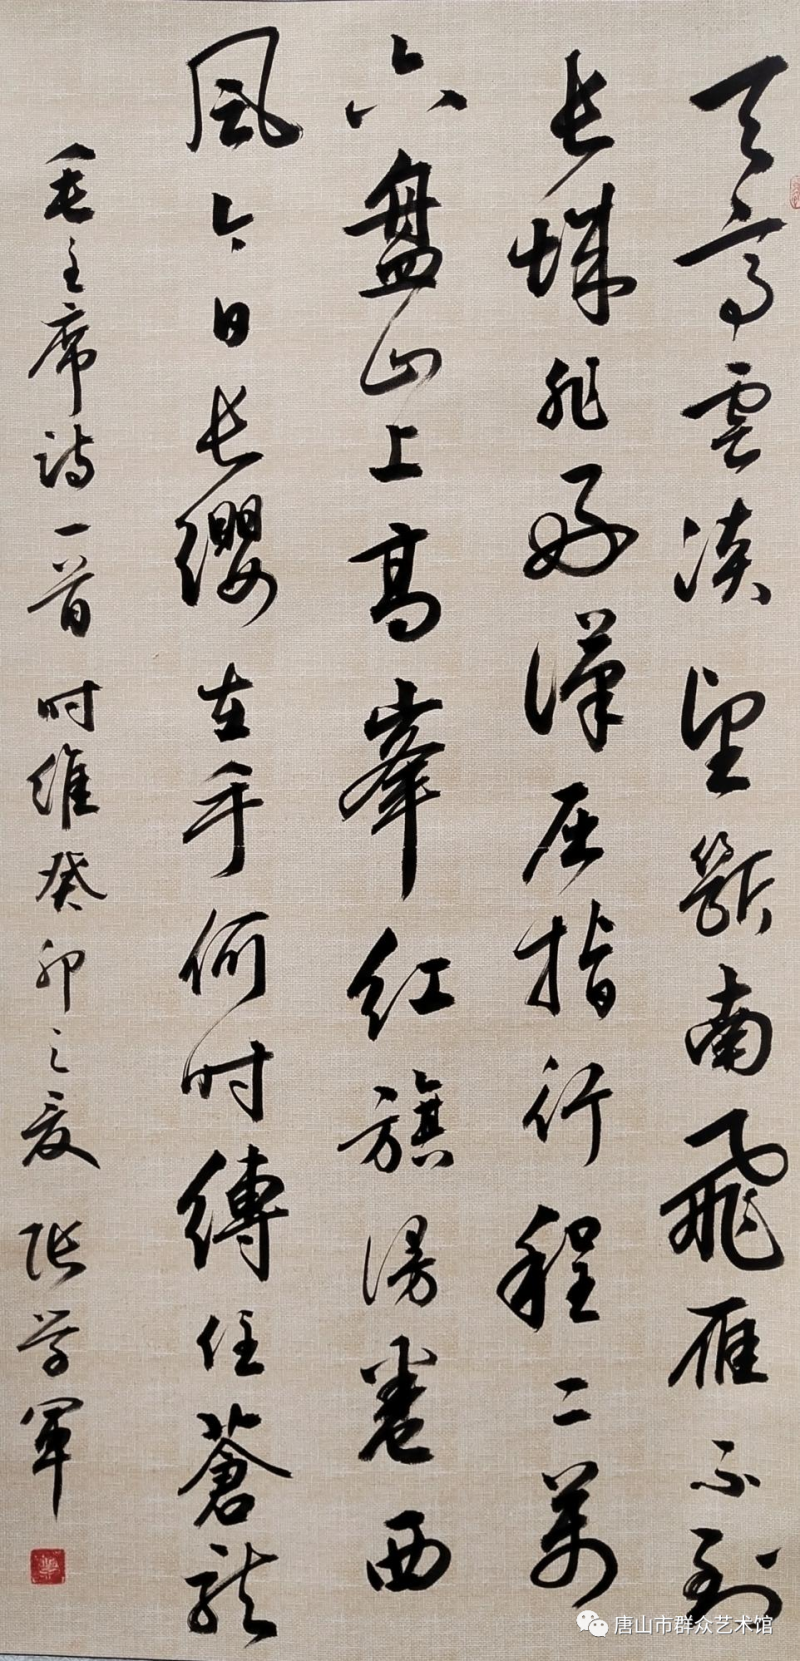 天高雲淡望斷南飛雁不到
长城非好漢屈指行程二萬
六盘山上高峯红旗漫卷西
风今日长缨在手何时缚住蒼龍
毛主席诗一首 时维癸卯之夏 张学軍
唐山市群众艺术馆